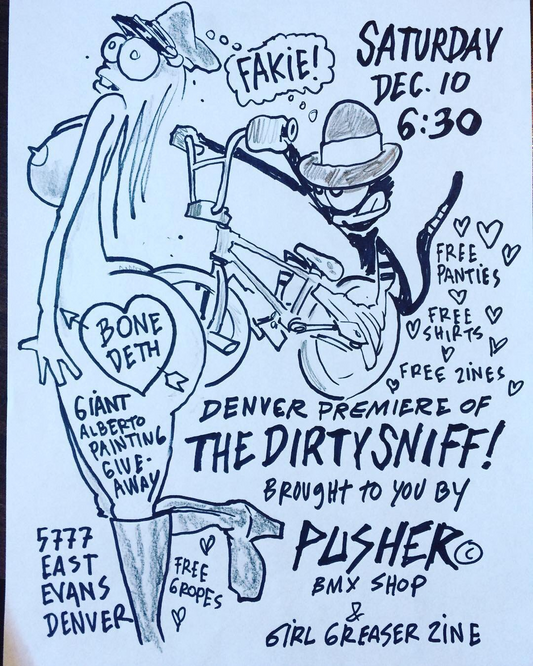 FAKIE!
SATURDAY
DEC. 10
6:30
FREE
PANTIES
FREE
SHIRTS
FREE ZINES
BONE
DETH
GIANT
ALBERTO
PAINTING
GIVE-
AWAY
DENVER PREMIERE OF
THE DIRTY SNIFF!
BROUGHT TO YOU BY
PUSHER©
BMX SHOP
&
GIRL GREASER ZINE
5777
EAST
EVANS
DENVER
FREE
GROPES